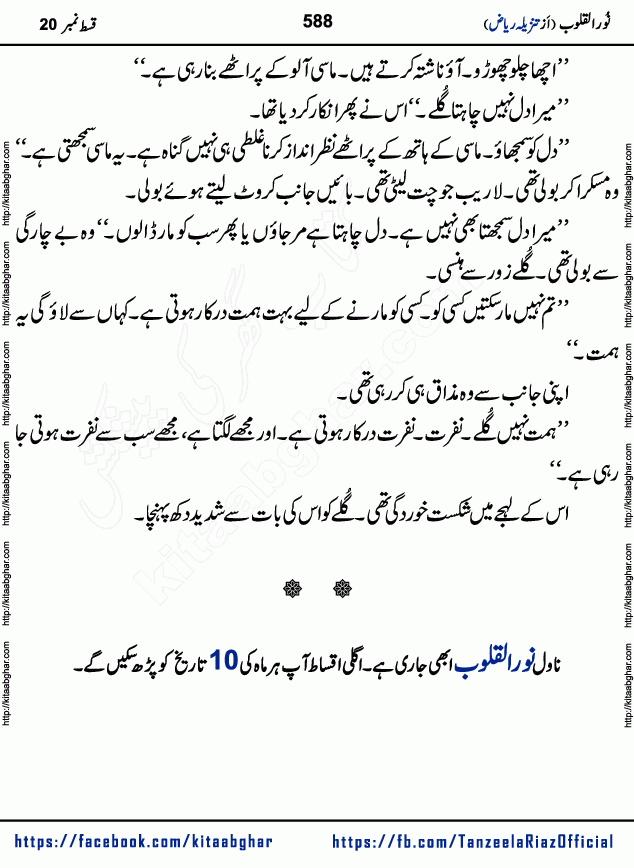 نُور القلوب (اَز تنزیلہ ریاض)
588
قسط نمبر 20
’’اچھا چلو چھوڑو۔ آؤ ناشتہ کرتے ہیں۔ ماسی آلو کے پراٹھے بنا رہی ہے۔‘‘
’’میرا دل نہیں چاہتا گُلے۔‘‘ اس نے پھر انکار کر دیا تھا۔
’’دل کو سمجھاؤ۔ ماسی کے ہاتھ کے پراٹھے نظر انداز کرنا غلطی ہی نہیں گناہ ہے۔ یہ ماسی سمجھتی ہے۔‘‘
وہ مسکرا کر بولی تھی۔ لاریب جو چت لیٹی تھی۔ بائیں جانب کروٹ لیتے ہوئے بولی۔
’’میرا دل سمجھتا بھی نہیں ہے۔ دل چاہتا ہے مر جاؤں یا پھر سب کو مار ڈالوں۔‘‘ وہ بے چارگی
سے بولی تھی۔ گُلے زور سے ہنسی۔
’’تم نہیں مار سکتیں کسی کو۔ کسی کو مارنے کے لیے بہت ہمت درکار ہوتی ہے۔ کہاں سے لاؤ گی یہ
ہمت۔‘‘
اپنی جانب سے وہ مذاق ہی کر رہی تھی۔
’’ہمت نہیں گُلے۔ نفرت۔ نفرت درکار ہوتی ہے۔ اور مجھے لگتا ہے، مجھے سب سے نفرت ہوتی جا
رہی ہے۔‘‘
اس کے لہجے میں شکست خوردگی تھی۔ گُلے کو اس کی بات سے شدید دکھ پہنچا۔
ناول نور القلوب ابھی جاری ہے۔ اگلی اقساط آپ ہر ماہ کی 10 تاریخ کو پڑھ سکیں گے۔
https://facebook.com/kitaabghar
https://fb.com/TanzeelaRiazOfficial
http://kitaabghar.com
http://kitaabghar.com
http://kitaabghar.com
http://kitaabghar.com
http://kitaabghar.com
http://kitaabghar.com
http://kitaabghar.com
http://kitaabghar.com
http://kitaabghar.com
http://kitaabghar.com
http://kitaabghar.com
http://kitaabghar.com
کتاب گھر کی پیشکش
kitaabghar.com